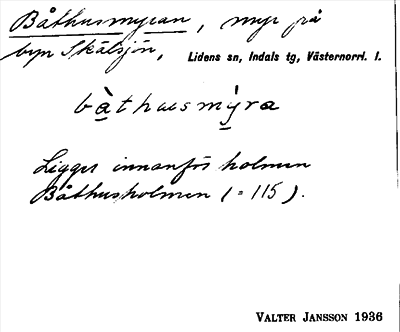 Båthusmyran, myr på
byn Skälsjön, Lidens sn, Indals tg, Västernorrl. l.
bàthusmỳra
Ligger innanför holmen
Båthusholmen (= 115).
VALTER JANSSON 1936